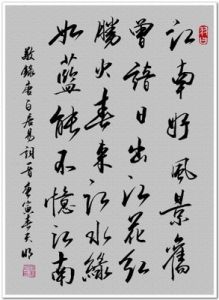 江南好風景舊
曾諳日出江花紅
勝火春來江水緑
如藍能不憶江南
敬錄唐白居易詞一首庚寅春天明